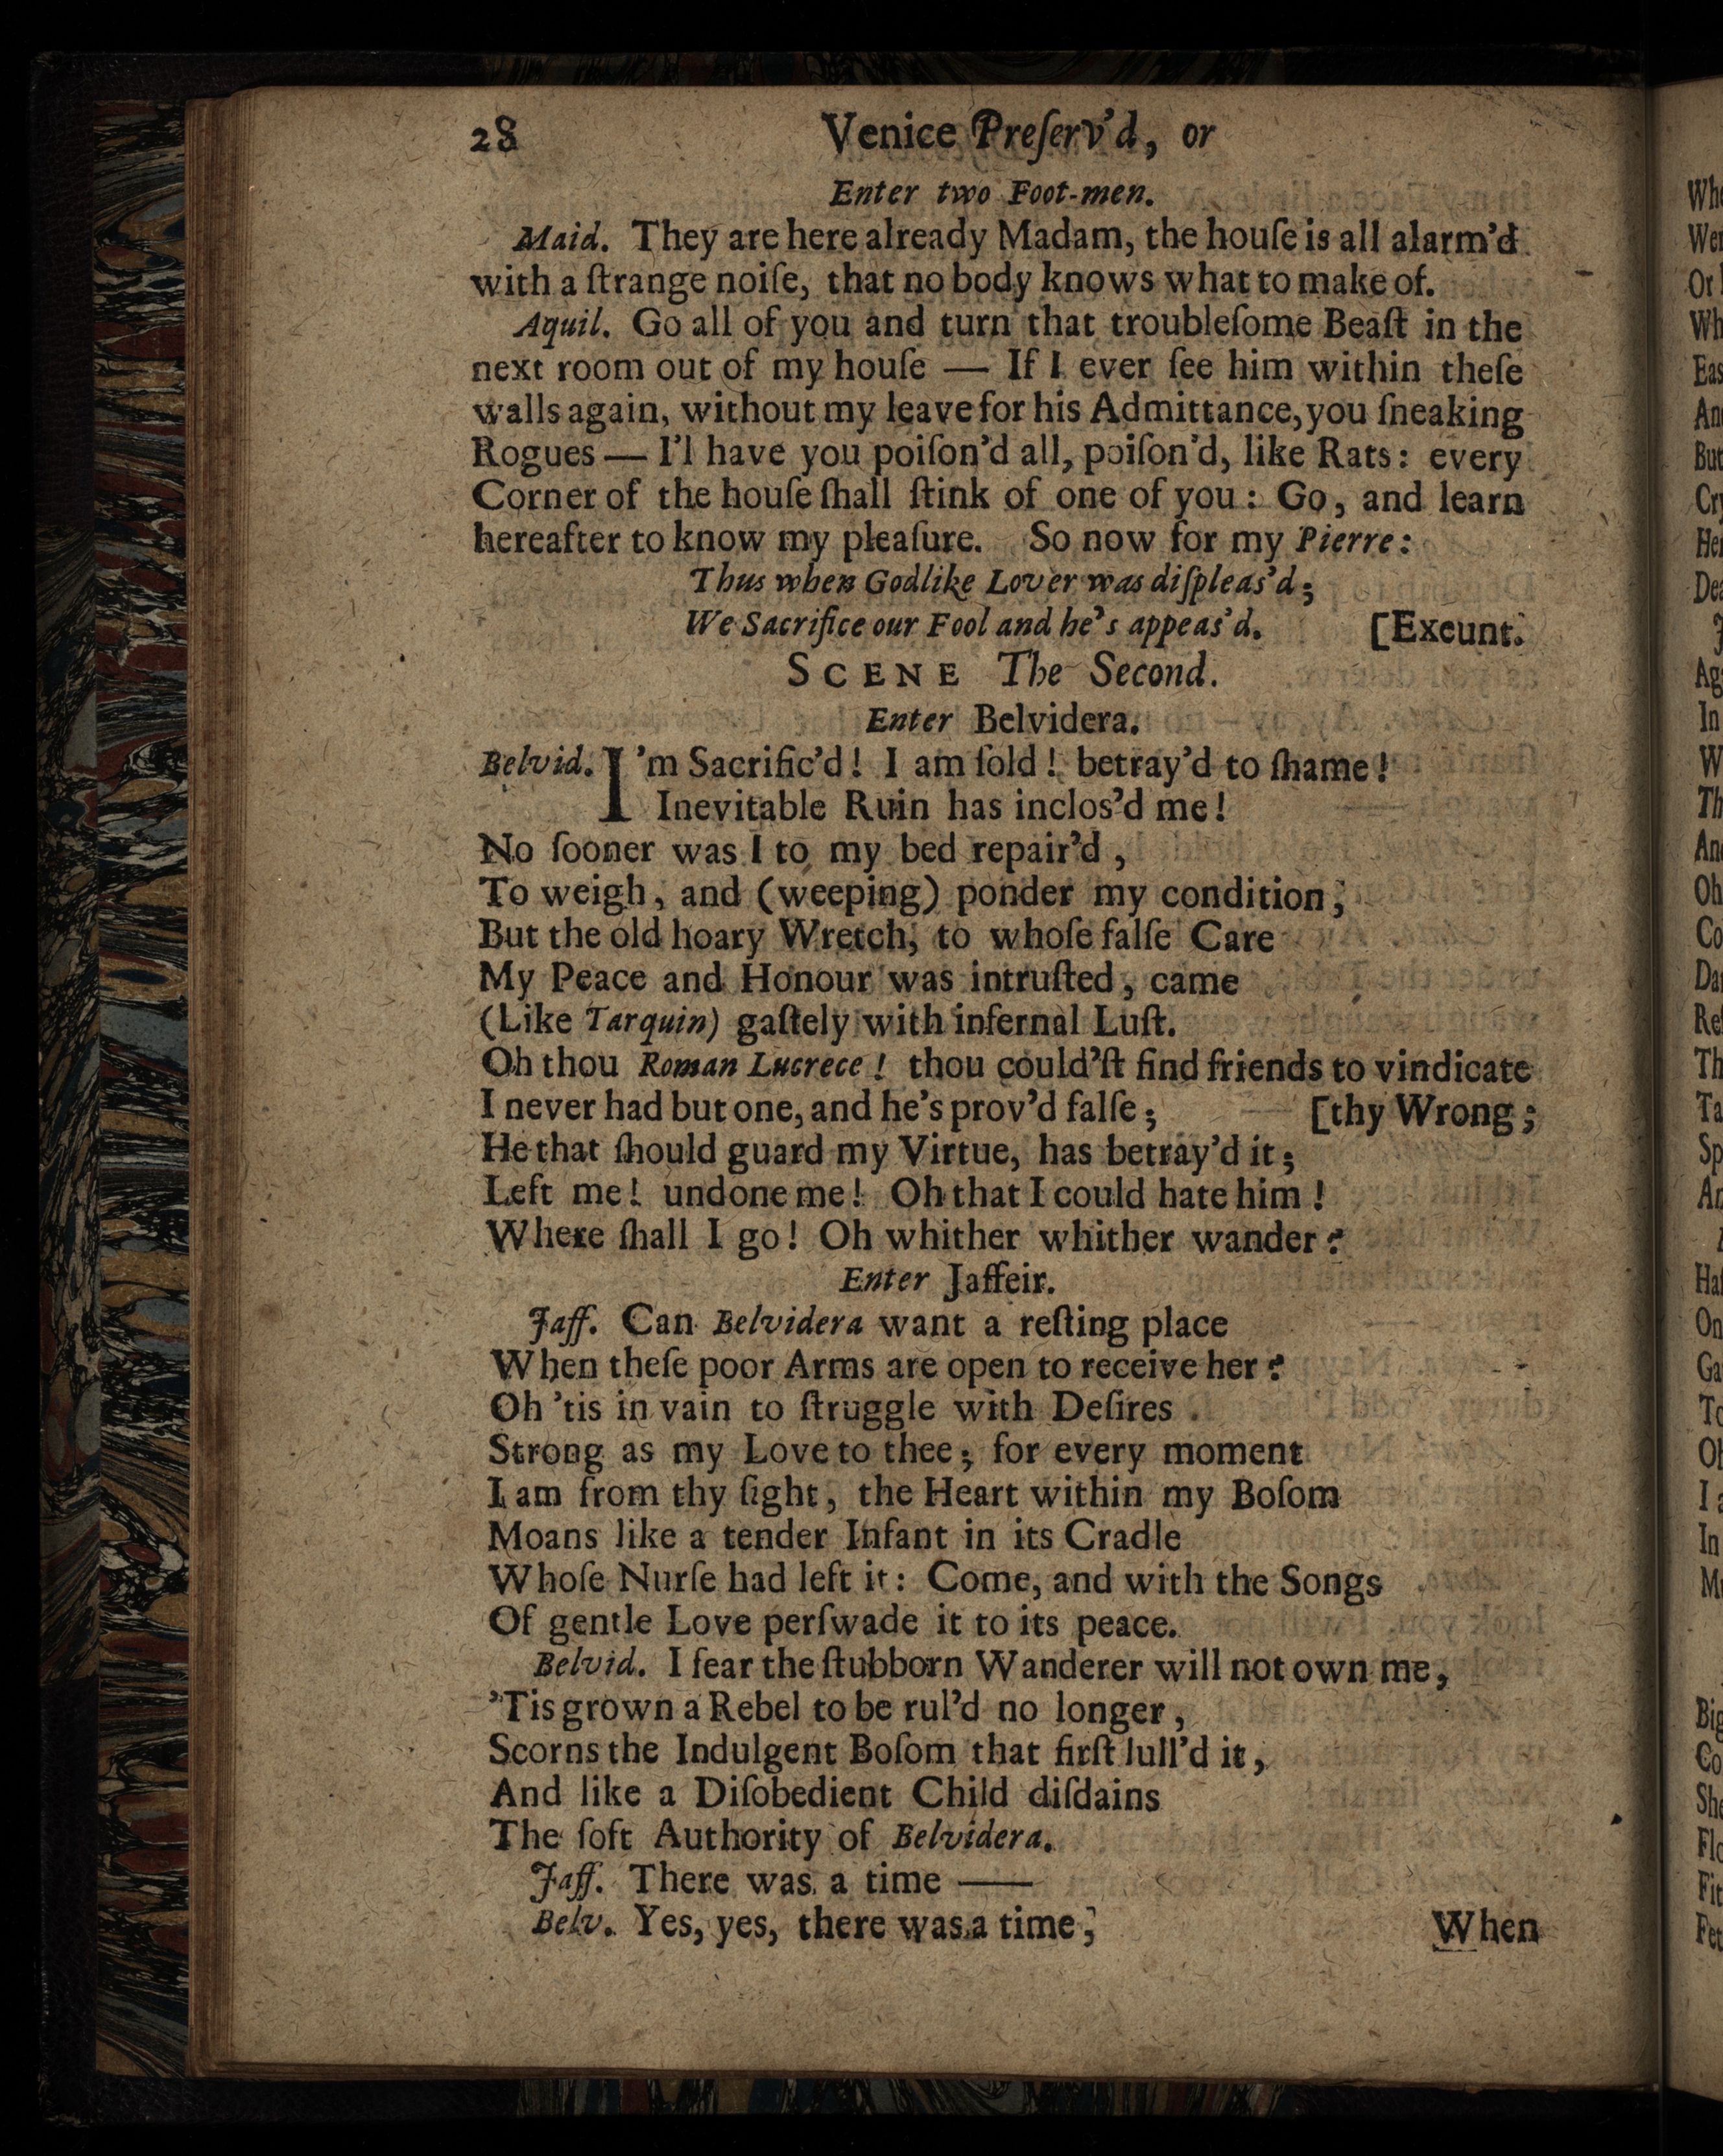 28 Venice Preſerv'd, or
Enter two Foot-men.
Maid. They are here already Madam, the houſe is all alarm'd
with a ſtrange noiſe, that no body knows what to make of.
Aquil. Go all of you and turn that troubleſome Beaſt in the
next room out of my houſe — If I ever ſee him within theſe
walls again, without my leave for his Admittance, you ſneaking
Rogues — I'l have you poiſon'd all, poiſon'd, like Rats: every
Corner of the houſe ſhall ſtink of one of you: Go, and learn
hereafter to know my pleaſure. So now for my Pierre:
Thus when Godlike Lover was diſpleas'd;
We Sacrifice our Fool and he's appeas'd. [Exeunt.
SCENE The Second.
Enter Belvidera.
Belvid. I'm Sacrific'd! I am ſold! betray'd to ſhame!
Inevitable Ruin has inclos'd me!
No ſooner was I to my bed repair'd,
To weigh, and (weeping) ponder my condition;
But the old hoary Wretch, to whoſe falſe Care
My Peace and Honour was intruſted, came
(Like Tarquin) gaſtely with infernal Luſt.
Oh thou Roman Lucrece! thou could'ſt find friends to vindicate
I never had but one, and he's prov'd falſe; [thy Wrong;
He that ſhould guard my Virtue, has betray'd it;
Left me! undone me! Oh that I could hate him!
Where ſhall I go! Oh whither whither wander?
Enter Jaffeir.
Jaff. Can Belvidera want a reſting place
When theſe poor Arms are open to receive her?
Oh 'tis in vain to ſtruggle with Deſires
Strong as my Love to thee; for every moment
I am from thy ſight, the Heart within my Boſom
Moans like a tender Infant in its Cradle
Whoſe Nurſe had left it: Come, and with the Songs
Of gentle Love perſwade it to its peace.
Belvid. I fear the ſtubborn Wanderer will not own me,
'Tis grown a Rebel to be rul'd no longer,
Scorns the Indulgent Boſom that firſt lull'd it,
And like a Diſobedient Child diſdains
The ſoft Authority of Belvidera.
Jaff. There was a time —
Belv. Yes, yes, there was a time;
When